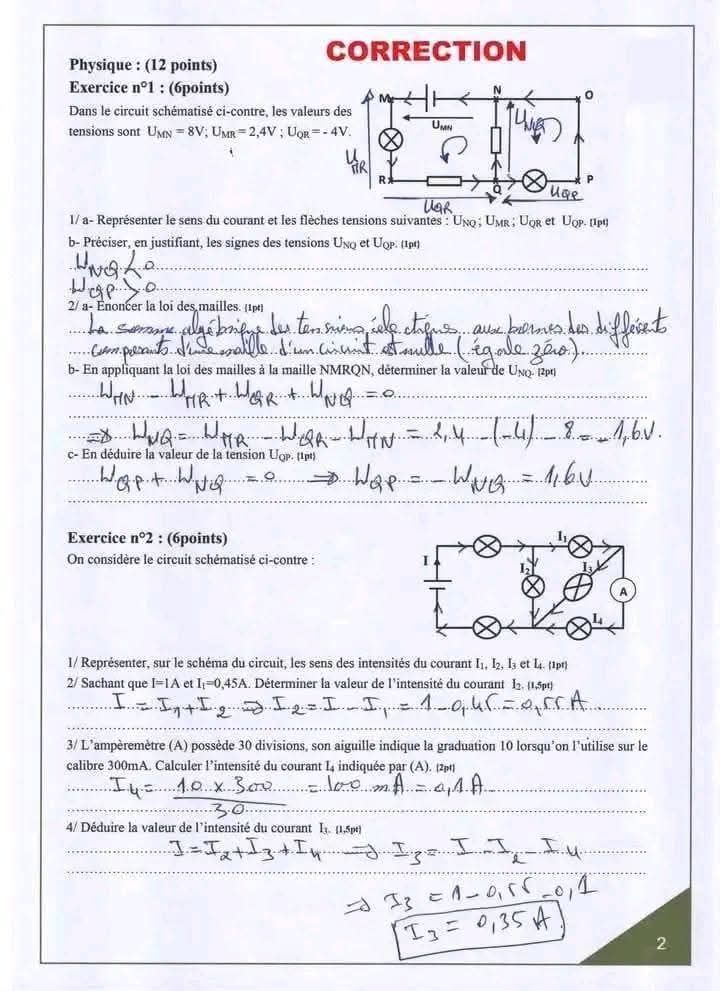 CORRECTION
Physique : (12 points)
Exercice n°1 : (6points)
Dans le circuit schématisé ci-contre, les valeurs des
tensions sont UMN = 8V; UMR = 2,4V ; UQR = - 4V.
M
N
O
UMN
UNQ
UMR
R
Q
P
UQR
UQP
1/ a- Représenter le sens du courant et les flèches tensions suivantes : UNQ ; UMR ; UQR et UQP. (1pt)
b- Préciser, en justifiant, les signes des tensions UNQ et UQP. (1pt)
UNQ < 0
UQP > 0
2/ a- Enoncer la loi des mailles. (1pt)
La somme algébrique des tensions électriques aux bornes des différents
composants d'une maille d'un circuit est nulle (égale zéro).
b- En appliquant la loi des mailles à la maille NMRQN, déterminer la valeur de UNQ. (2pt)
UMN - UMR + UQR + UNQ = 0
=> UNQ = UMR - UQR - UMN = 2,4 - (-4) - 8 = - 1,6V.
c- En déduire la valeur de la tension UQP. (1pt)
UQP + UNQ = 0 => UQP = - UNQ = 1,6V
Exercice n°2 : (6points)
On considère le circuit schématisé ci-contre :
I
I1
I2
I3
A
I4
1/ Représenter, sur le schéma du circuit, les sens des intensités du courant I1, I2, I3 et I4. (1pt)
2/ Sachant que I=1A et I1=0,45A. Déterminer la valeur de l'intensité du courant I2. (1,5pt)
I = I1 + I2 => I2 = I - I1 = 1 - 0,45 = 0,55A
3/ L'ampèremètre (A) possède 30 divisions, son aiguille indique la graduation 10 lorsqu'on l'utilise sur le
calibre 300mA. Calculer l'intensité du courant I4 indiquée par (A). (2pt)
I4 = 10 x 300 = 100 mA = 0,1A
30
4/ Déduire la valeur de l'intensité du courant I3. (1,5pt)
I = I2 + I3 + I4 => I3 = I - I2 - I4
=> I3 = 1 - 0,55 - 0,1
I3 = 0,35A.
2